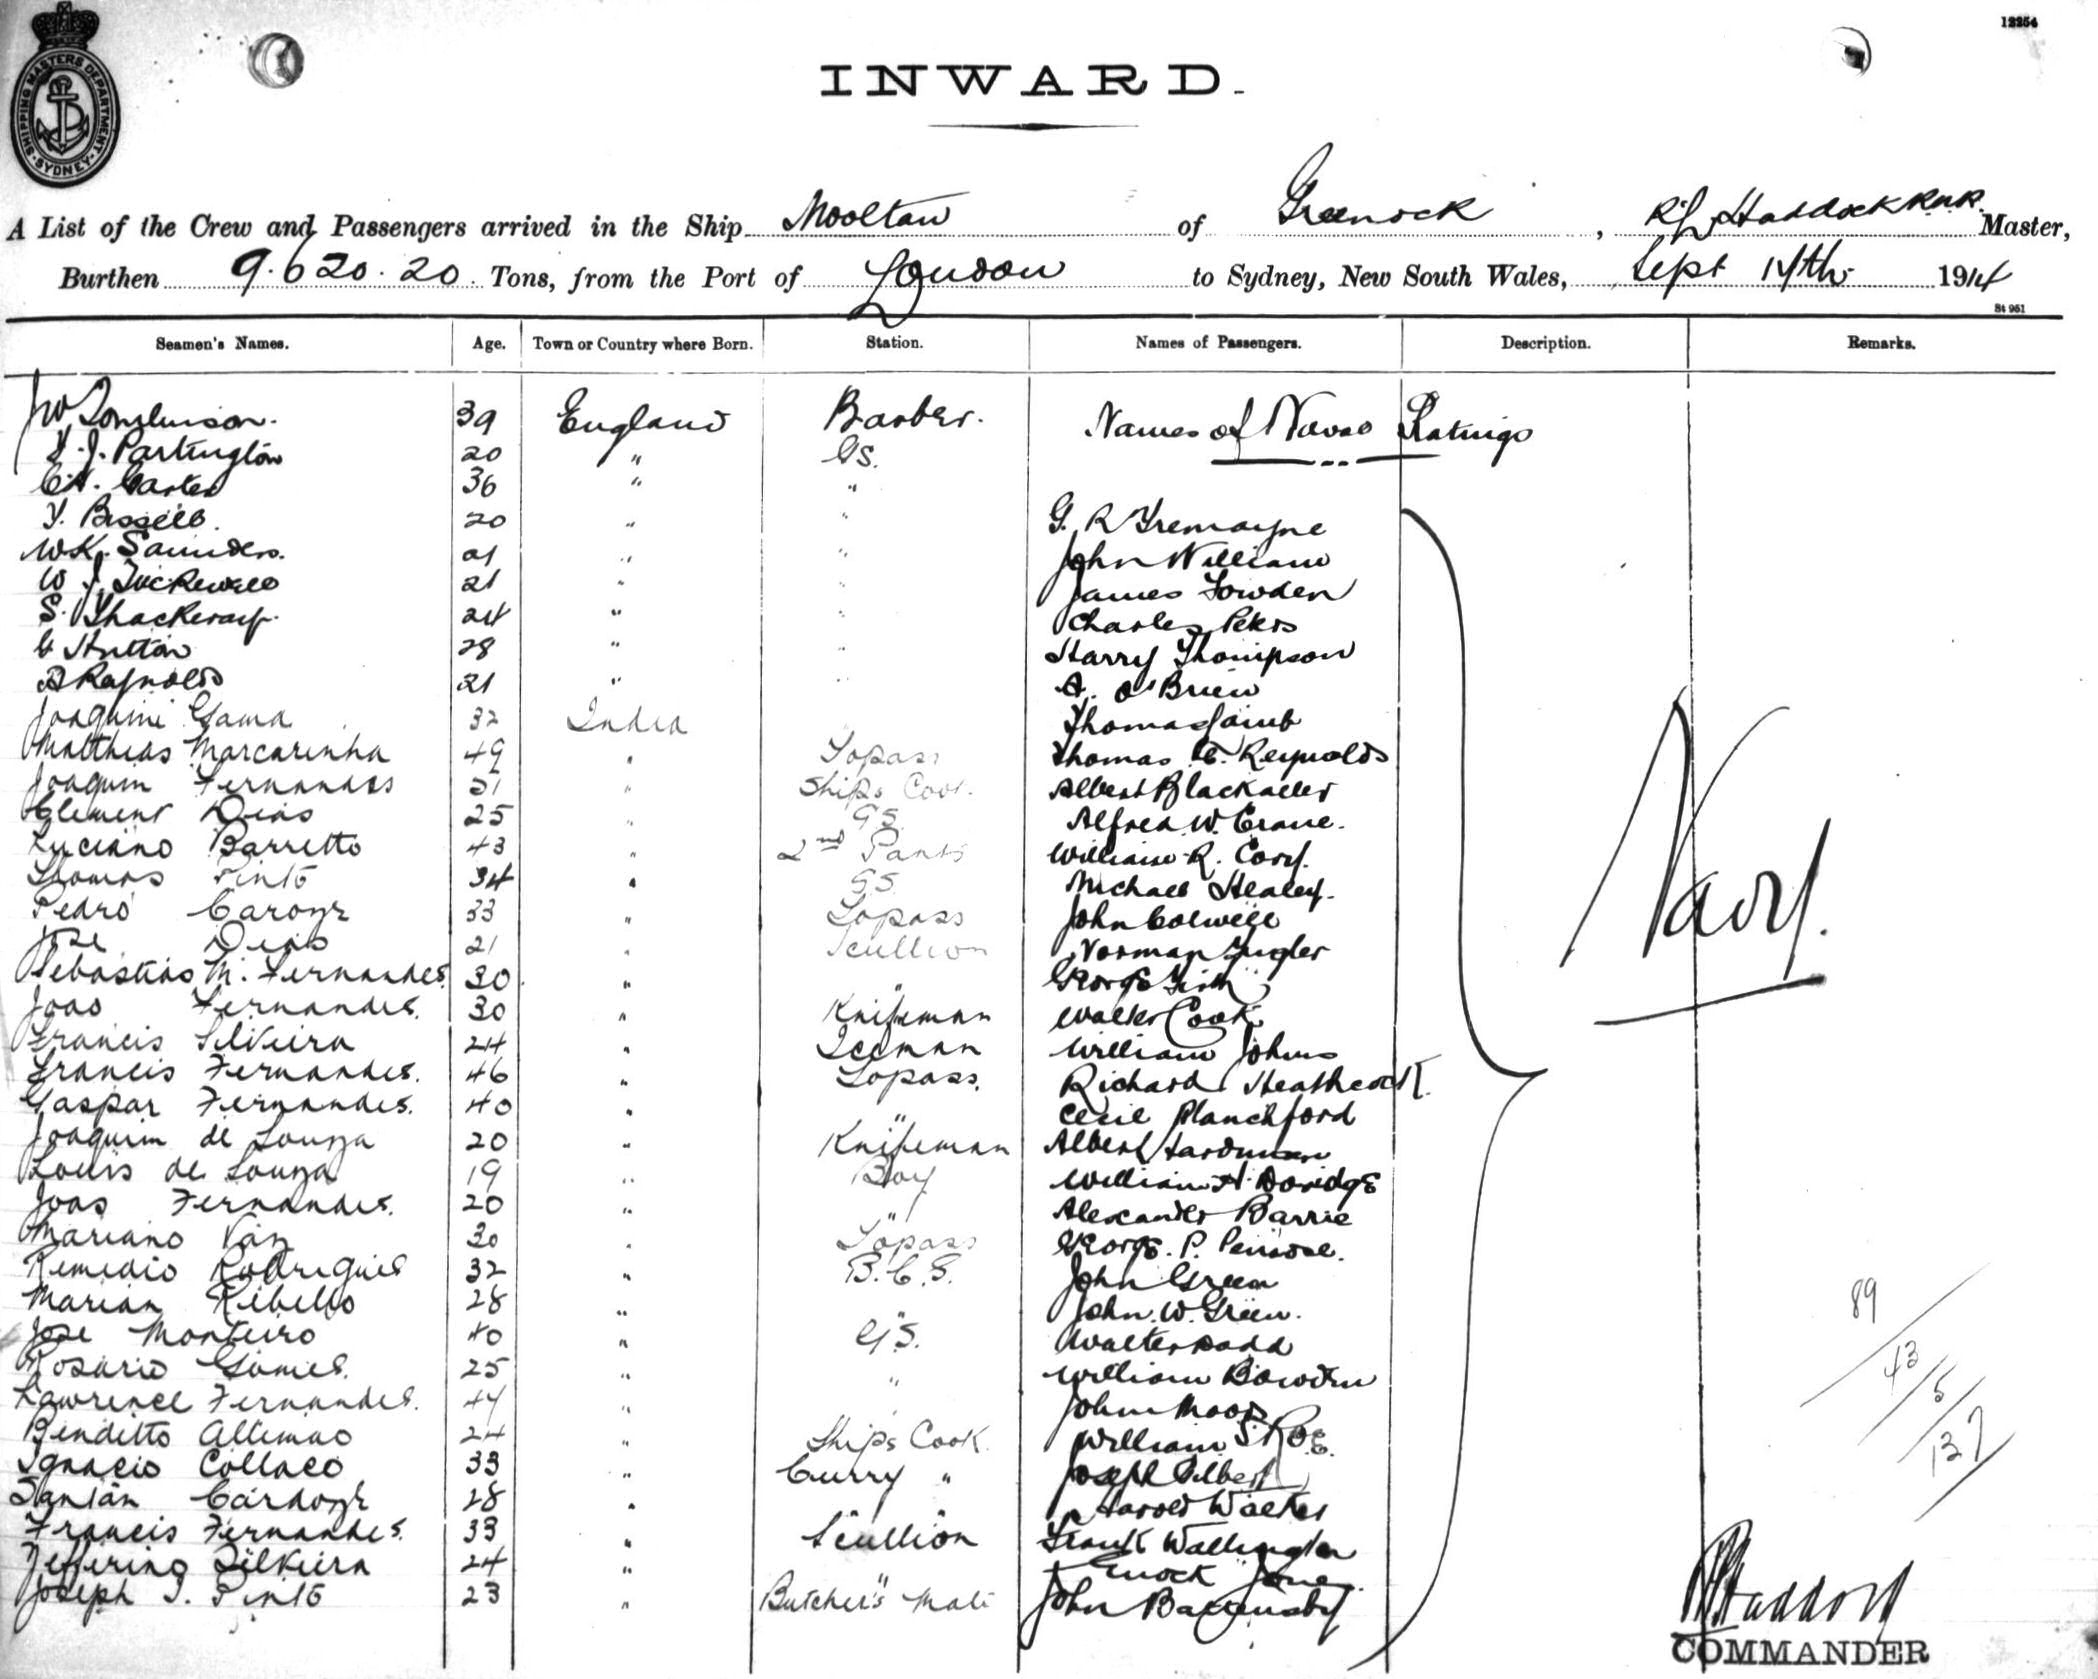 12254
SHIPPING MASTERS DEPARTMENT. SYDNEY.
INWARD.
A List of the Crew and Passengers arrived in the Ship Mooltan of Greenock, Haddock RNR. Master,
Burthen 9.620.20 Tons, from the Port of London to Sydney, New South Wales, Sept 14th 1914
St 951
Seamen's Names. Age. Town or Country where Born. Station. Names of Passengers. Description. Remarks.
JW Tomlinson. 39 England Barber. Names of Naval Ratings
J. Partington 20 " GS.
Carter 36 " "
Bissell. 20 " " G. R Tremayne
WK. Saunders. 21 " " John William
W J. Tuckwell 21 " " James Lowden
S. Thackeray. 24 " " Charles Peters
G Hutton 28 " " Harry Thompson
Reynolds 21 " " A. O'Brien
Joaquim Gama 32 India Thomas
Matthias Marcarinha 49 " Topass Thomas E. Reynolds
Joaquim Fernandes 51 " Ships Cook. Albert Blackaller
Clement Dias 25 " GS Alfred W. Crane.
Luciano Barretto 43 " 2nd Pants William R. Cory.
Thomas Pinto 34 " GS. Michael Healey.
Pedro 33 " Topass John Colwell
Jose Dias 21 " Scullion Norman
Sebastiao M. Fernandes. 30 " " George
Joao Fernandes. 30 " Knifeman Walter Cook
Francis Silveira 24 " Iceman William Johns
Francis Fernandes. 46 " Topass. Richard Heathcock.
Gaspar Fernandes. 40 " " Cecil Blanchford
Joaquim de Souza 20 " Knifeman Albert Hardman
Louis de Souza 19 " Boy William H. Doridge
Joao Fernandes. 20 " " Alexander Barrie
Mariano Vaz 30 " Topass George. P. Penrose.
Remedio Rodrigues 32 " B.C.S. John Green
Marian Rebello 28 " " John. W. Green.
Jose Monteiro 40 " G.S. Walter Dodd
Rosario Gomes. 25 " " William Bowden
Lawrence Fernandes. 44 " John Moor
Benditto 24 " Ships Cook. William S. Roe.
Ignacio Collaco 33 " Curry " Joseph Gilbert
Santan Cardoze 28 " Harold Walter
Francis Fernandes. 33 " Scullion Frank Wallington
Zefferino Silveira 24 " " Enock Jones.
Joseph S. Pinto 23 " Butcher's Mate John
Navy.
89
43
5
137
Haddock
COMMANDER